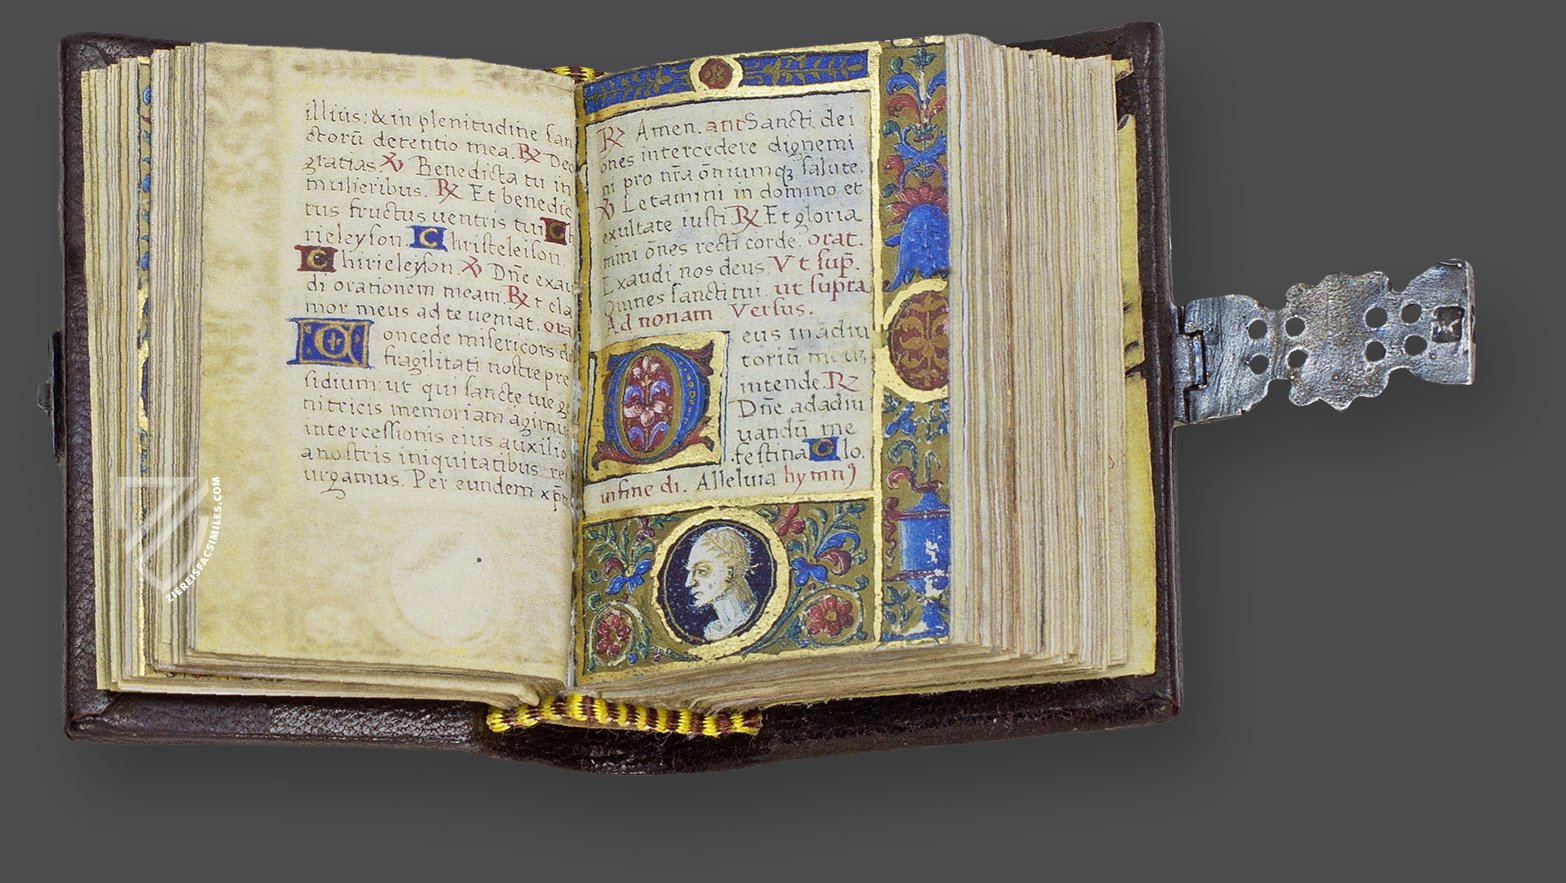 illius: & in plenitudine san
ctorū detentio mea. ℟ Deo
gratias. ℣ Benedicta tu in
mulieribus. ℟ Et benedic
tus fructus uentris tui C h
rieleyson C hristeleison
C hirieleyson. ℣ Dn̄e exau
di orationem meam ℟ t cla
mor meus ad te ueniat. ora
C oncede misericors de
fragilitati nostre pre
sidium: ut qui sancte tue
nitricis memoriam agimu
intercessionis eius auxilio
a nostris iniquitatibus re
urgamus. Per eundem xp̄
℟ Amen. ant Sancti dei
ōnes intercedere dignemi
ni pro nr̄a ōniumqȝ salute.
℣ Letamini in domino et
exultate iusti ℟ Et gloria
mini ōnes recti corde. orat.
xaudi nos deus. Vt sup̄.
Omnes sancti tui. ut supra
Ad nonam Versus.
D eus in adiu
toriū meuz
intende ℟
Dn̄e ad adiu
uandū me
festina G lo.
in fine di. Alleluia hymnꝰ
ZIEREISFACSIMILES.COM